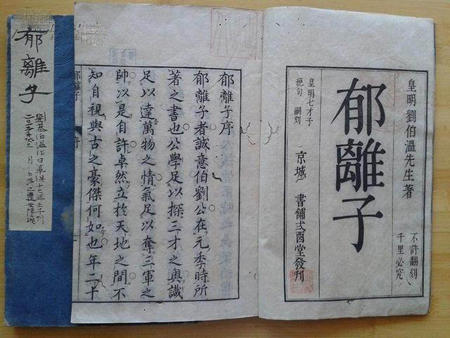 皇明劉伯溫先生著
不許翻刻
千里必究
郁離子
皇明七才子
京城 書鋪文酉堂發刊
郁離子序
郁離子者誠意伯劉公在元季時所
著之書也公學足以探三才之奧識
足以達萬物之情氣足以奪三軍之
帥以是自許卓然立於天地之間不
知自視與古之豪傑何如也年二十
郁離子
郁離子